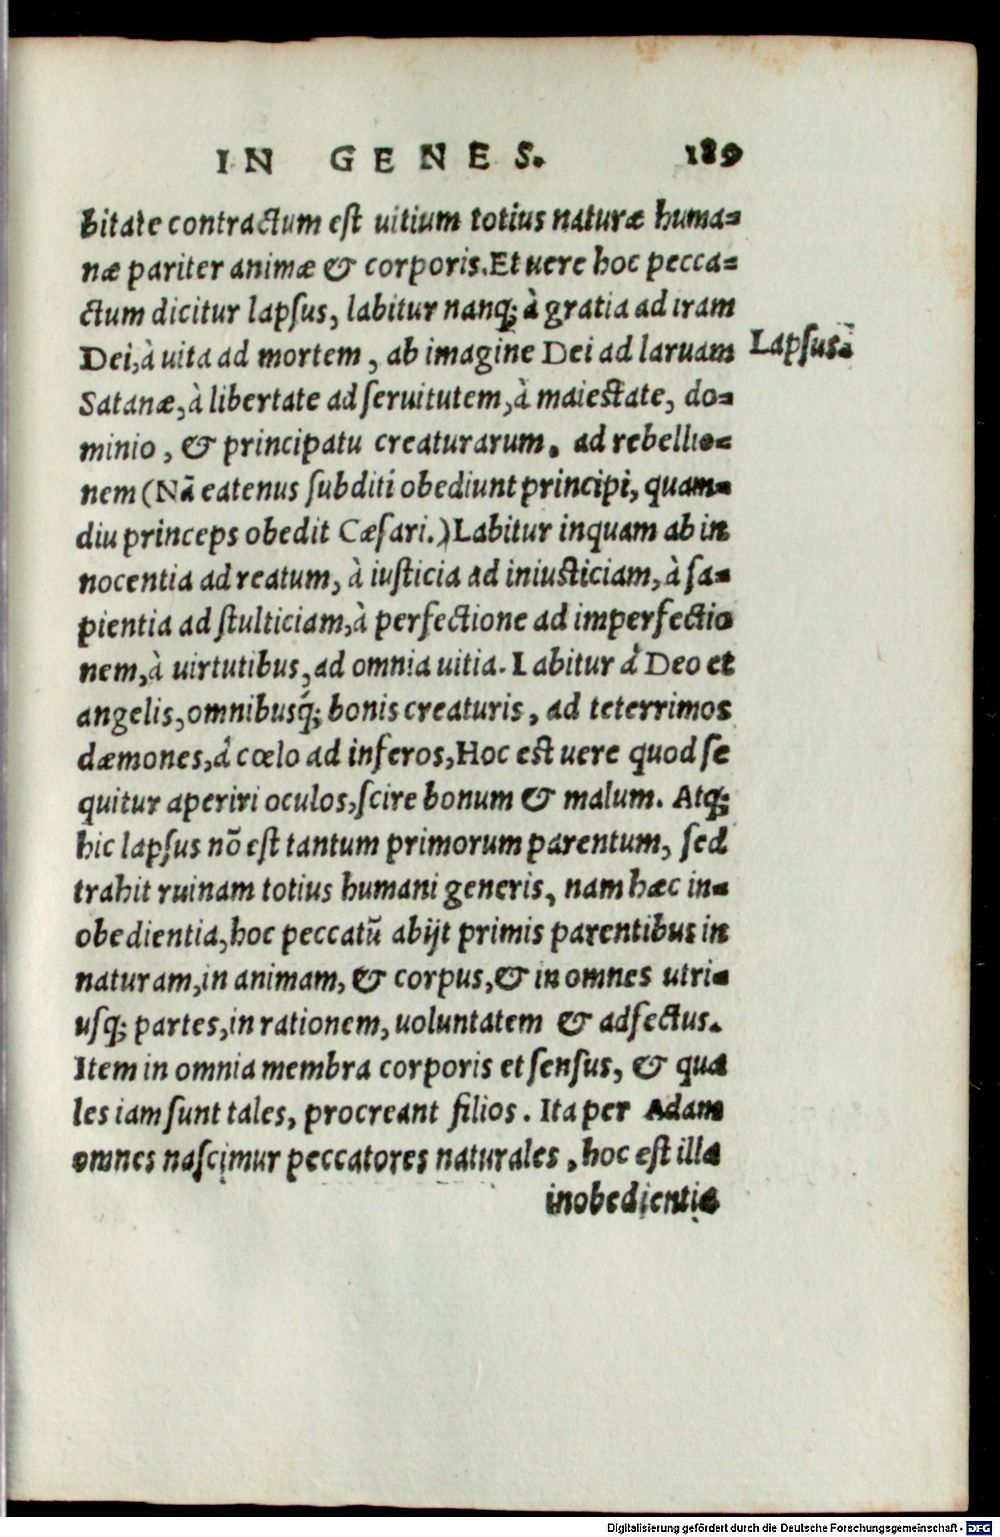 IN GENES. 189
bitate contractum est uitium totius naturæ huma-
næ pariter animæ & corporis. Et uere hoc pecca-
ctum dicitur lapsus, labitur nanq; à gratia ad iram
Dei, à uita ad mortem, ab imagine Dei ad laruam
Lapsus.
Satanæ, à libertate ad seruitutem, à maiestate, do-
minio, & principatu creaturarum, ad rebellio-
nem (Nā eatenus subditi obediunt principi, quam-
diu princeps obedit Cæsari.) Labitur inquam ab in
nocentia ad reatum, à iusticia ad iniusticiam, à sa-
pientia ad stulticiam, à perfectione ad imperfectio
nem, à uirtutibus, ad omnia uitia. Labitur à Deo et
angelis, omnibusq́; bonis creaturis, ad teterrimos
dæmones, à cœlo ad inferos, Hoc est uere quod se
quitur aperiri oculos, scire bonum & malum. Atq;
hic lapsus nō est tantum primorum parentum, sed
trahit ruinam totius humani generis, nam hæc in-
obedientia, hoc peccatū abijt primis parentibus in
naturam, in animam, & corpus, & in omnes utri-
usq; partes, in rationem, uoluntatem & adfectus.
Item in omnia membra corporis et sensus, & qua
les iam sunt tales, procreant filios. Ita per Adam
omnes nascimur peccatores naturales, hoc est illa
inobedientia
Digitalisierung gefördert durch die Deutsche Forschungsgemeinschaft - DFG